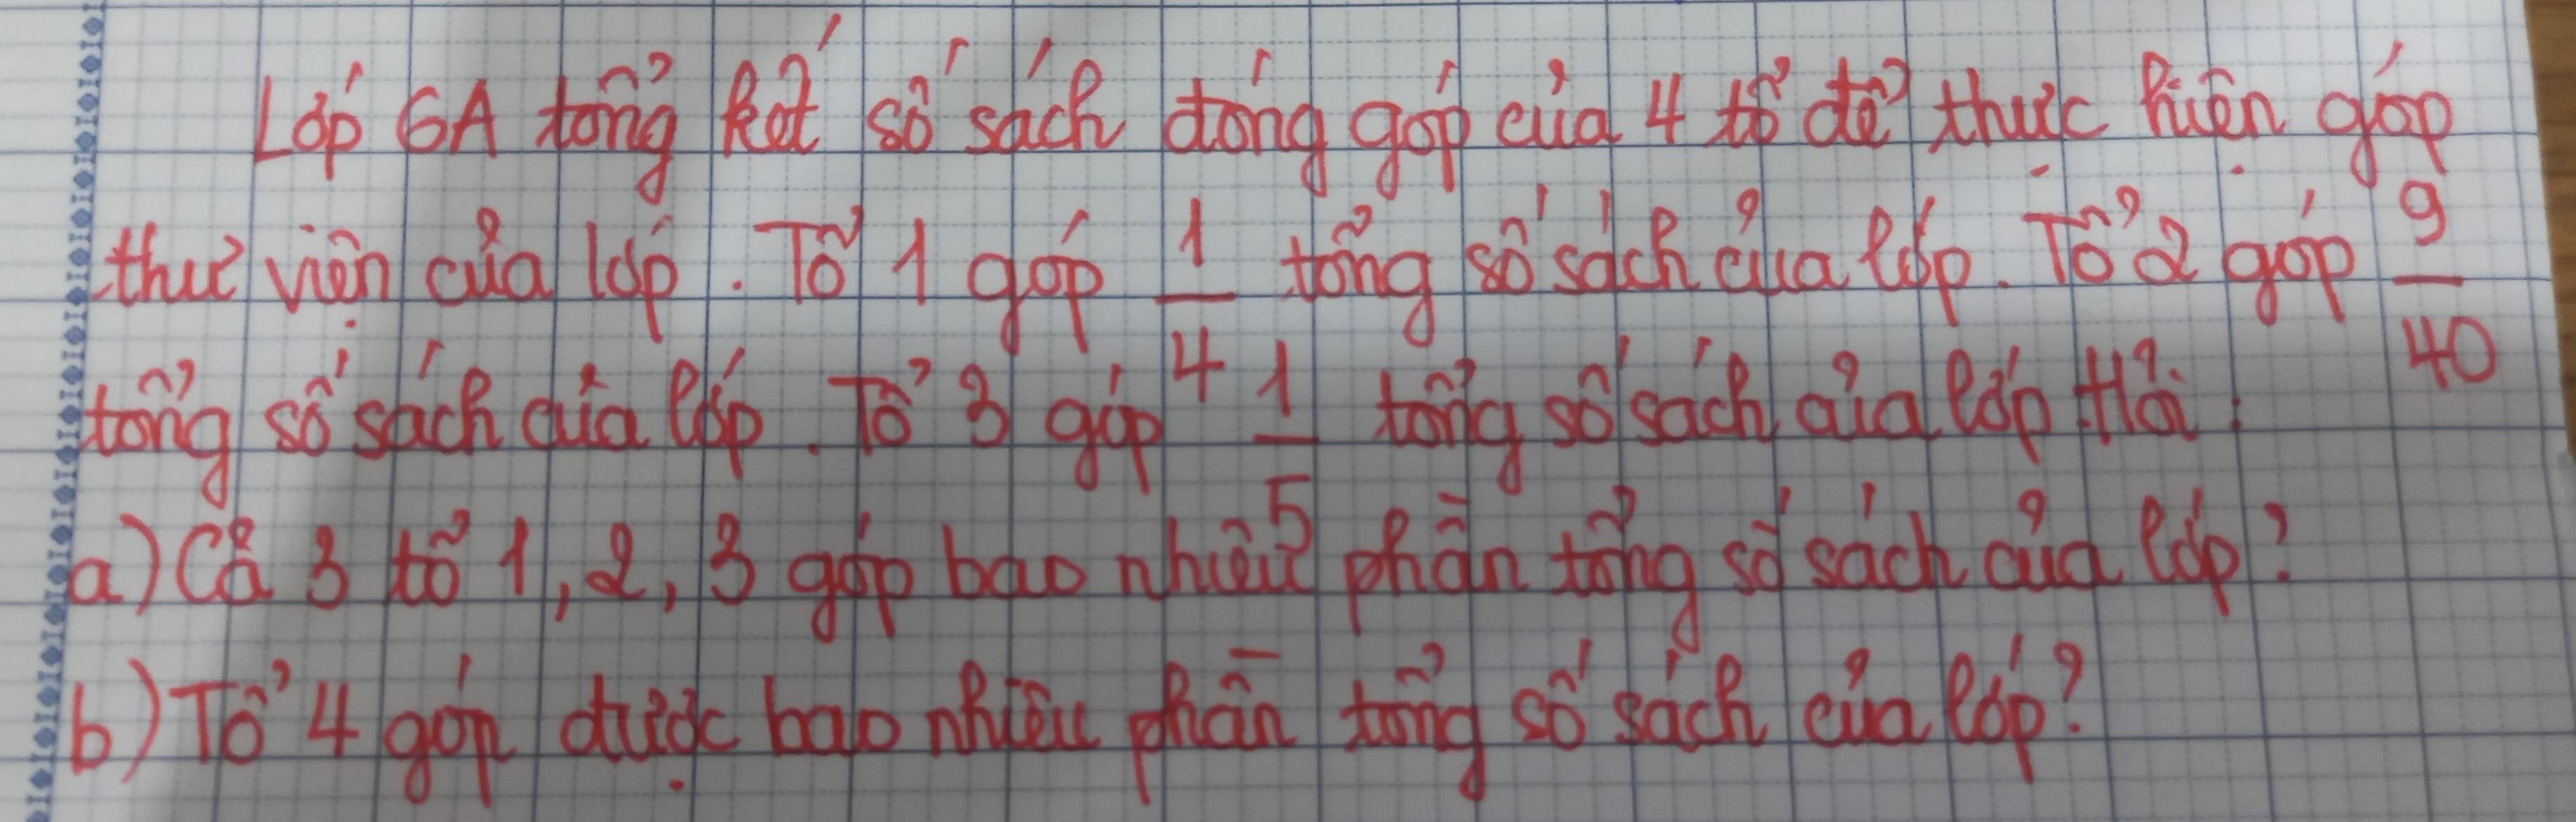 Lớp 6A tổng kết số sách đóng góp của 4 tổ để thực hiện góp
thư viện của lớp. Tổ 1 góp 1/4 tổng số sách của lớp. Tổ 2 góp 9/40
tổng số sách của lớp. Tổ 3 góp 1/5 tổng số sách của lớp. Hỏi:
a) Cả 3 tổ 1, 2, 3 góp bao nhiêu phần tổng số sách của lớp?
b) Tổ 4 góp được bao nhiêu phần tổng số sách của lớp?